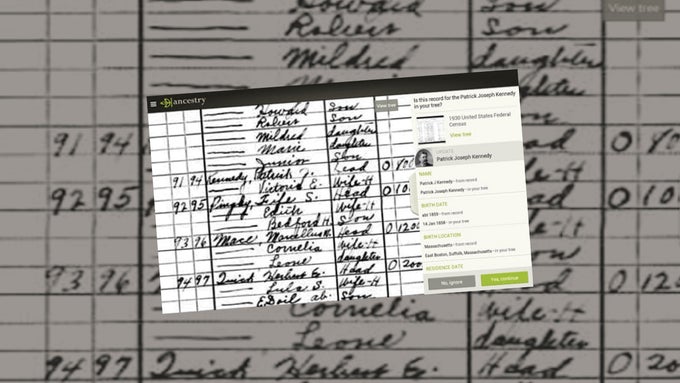 Howard Son
View tree
Robert Son
Mildred daughter
91 94 ead 0
92 95 ead 0 10
93 96 0 120
Cornelia Wife-H
Leone daughter
94 97 Quick Herbert G. Head 0 20
ancestry
View tree
Howard Son
Robert Son
Mildred daughter
Marie daughter
Junior Son
91 94 Kennedy, Patrick J. Head 0
Victoria E. Wife-H
92 95 S. Head 0 10
Edith Wife-H
Bedford H. Son
93 96 Mace, Marcellus H. Head 0 120
Cornelia Wife-H
Leone daughter
94 97 Quick Herbert G. Head 0 200
Lula S. Wife-H
Son
Is this record for the Patrick Joseph Kennedy
in your tree?
1930 United States Federal
Census
View tree
UPDATE
Patrick Joseph Kennedy
NAME
Patrick J Kennedy - from record
Patrick Joseph Kennedy - in your tree
BIRTH DATE
abt 1859 - from record
14 Jan 1858 - in your tree
BIRTH LOCATION
Massachusetts - from record
East Boston, Suffolk, Massachusetts - in your tree
RESIDENCE DATE
No, ignore
Yes, continue